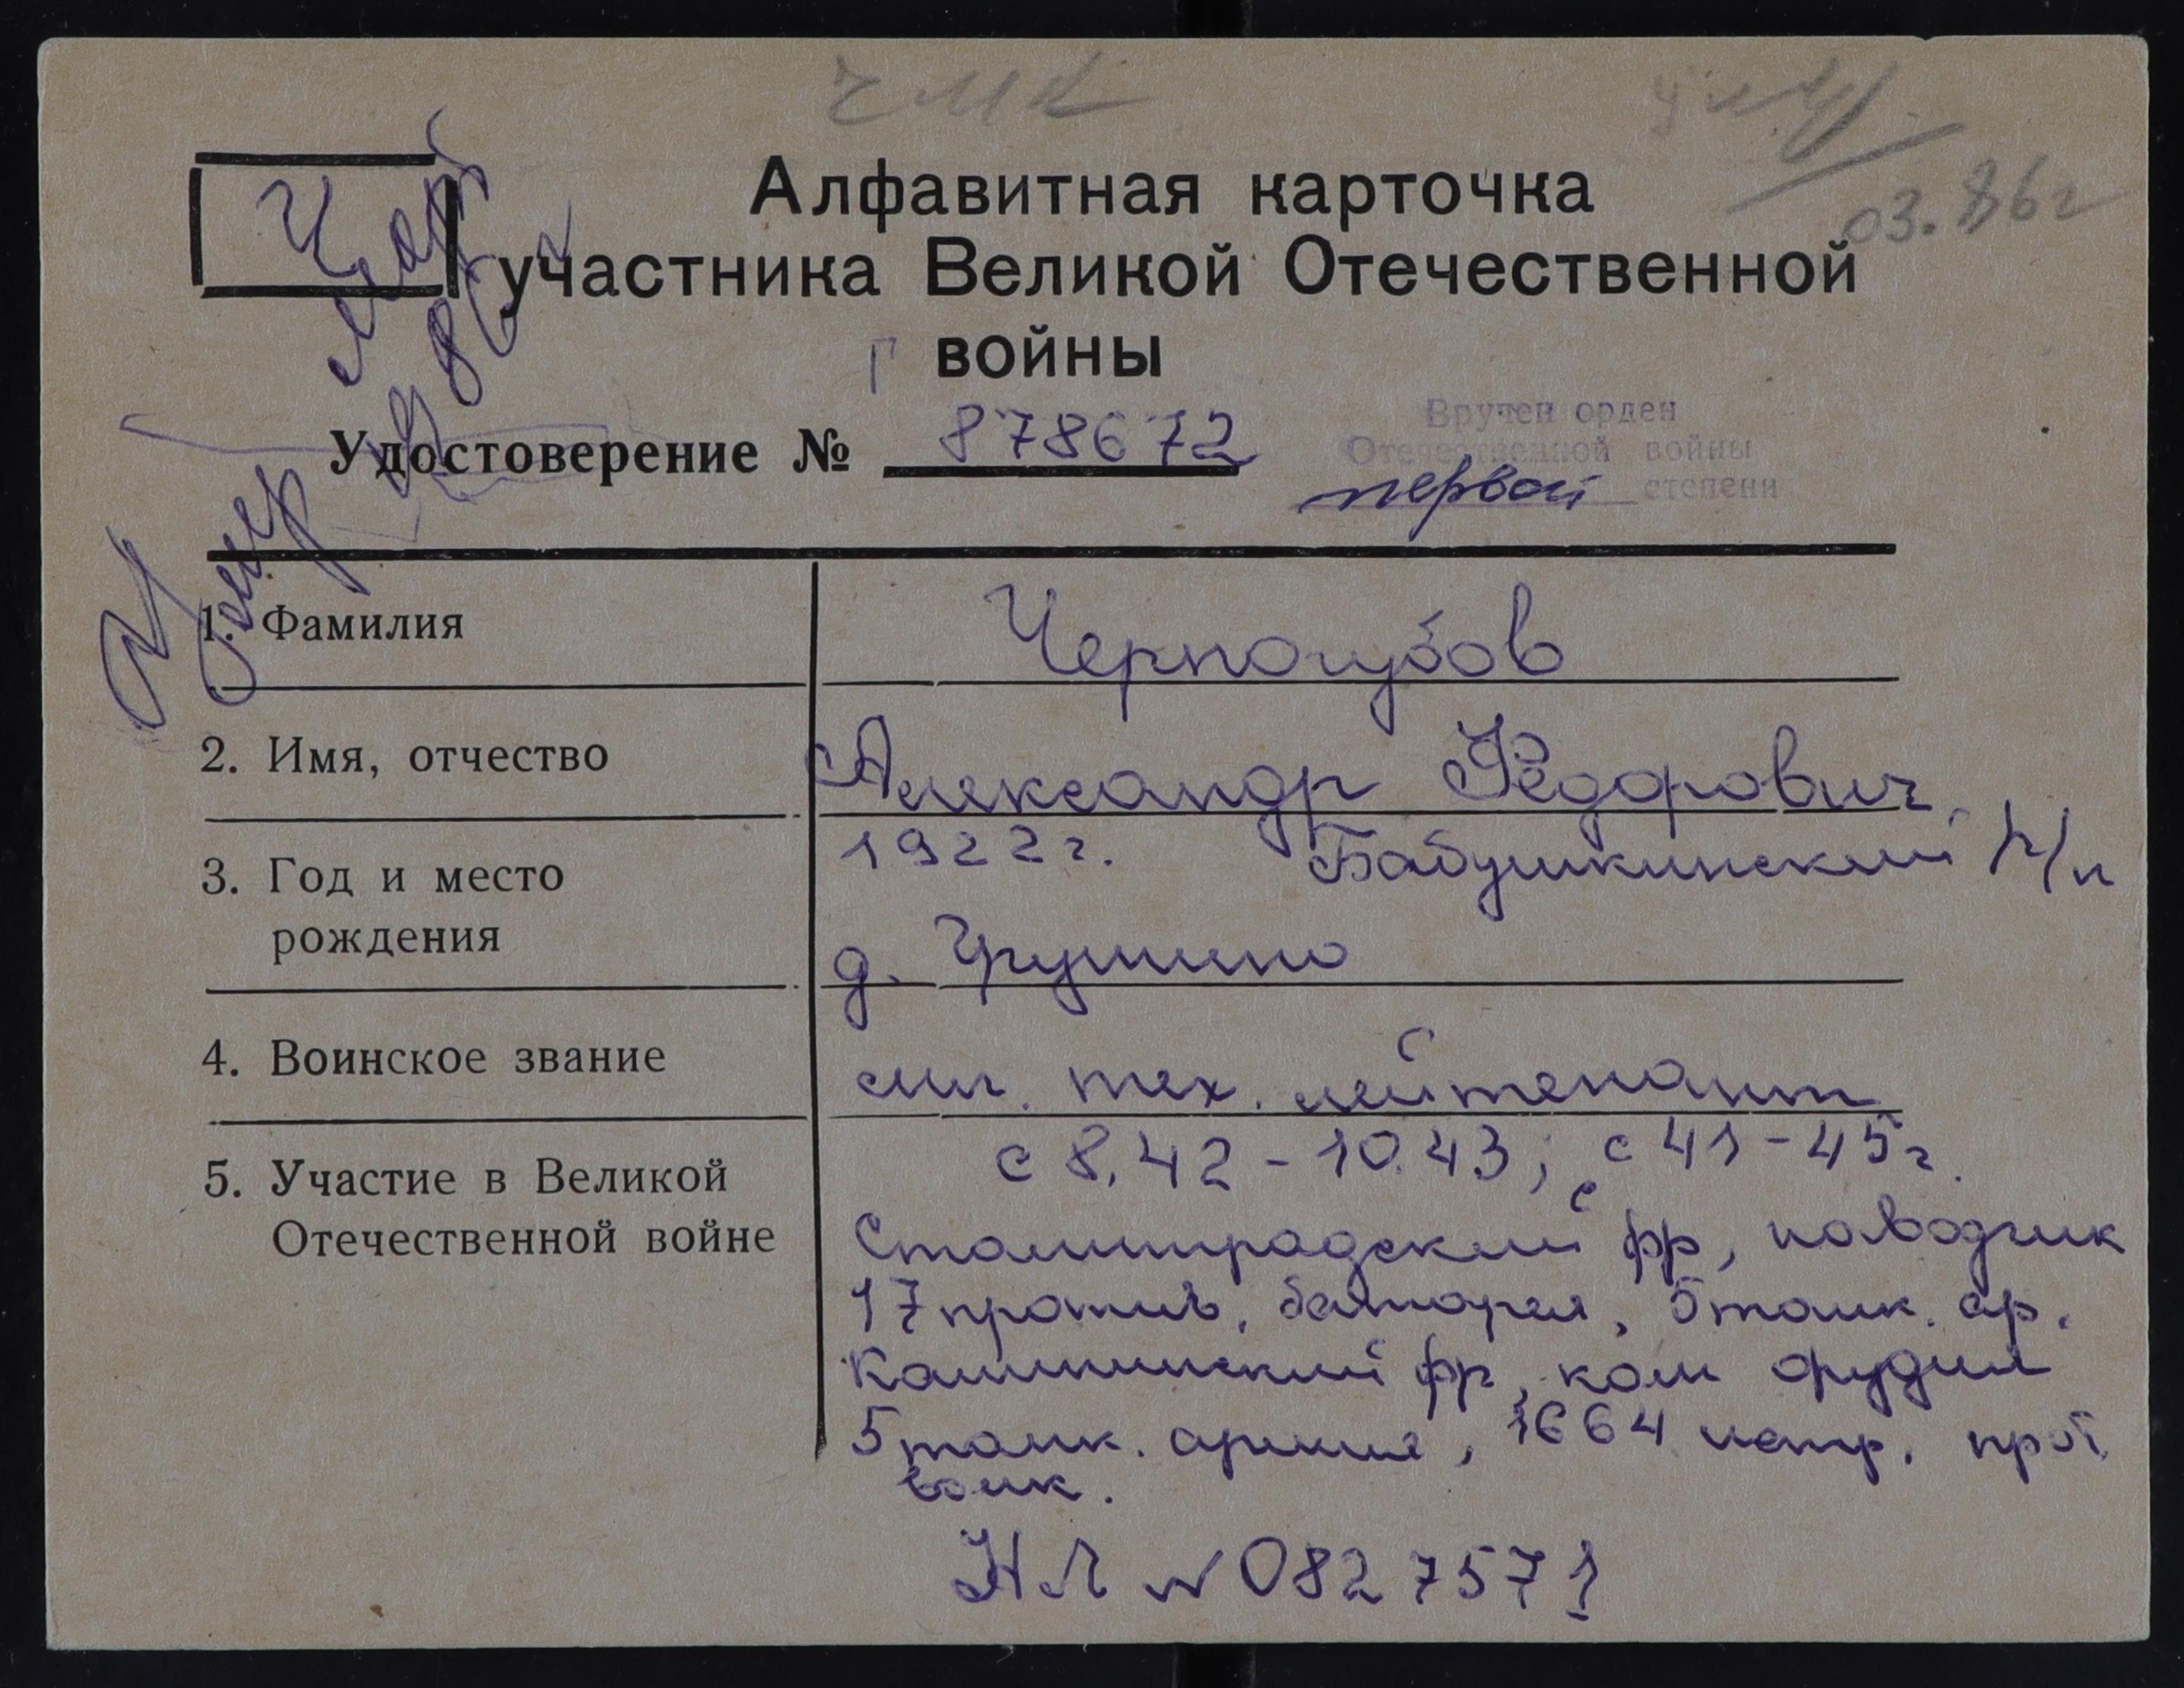 ЧМК
умер
03.86г
Ч
Алфавитная карточка
участника Великой Отечественной
войны
Удостоверение № Г 878672
Вручен орден
Отечественной войны
первой степени
Умер март 1986г
1. Фамилия Черногубов
2. Имя, отчество Александр Фёдорович
3. Год и место рождения 1922г. Бабушкинский р/н
д. Грушино
4. Воинское звание мл. тех. лейтенант
5. Участие в Великой Отечественной войне с 8.42 - 10.43; с 41-45г.
Сталинградский фр, наводчик
17 против. батарея, 5 танк. ар.
Калининский фр, ком орудия
5 танк. армия, 1664 истр. прот
танк.
НЛ № 0827571